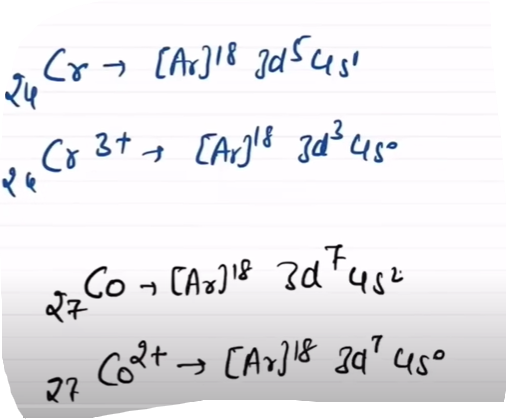 ₂₄Cr → [Ar]¹⁸ 3d⁵ 4s¹
₂₄Cr³⁺ → [Ar]¹⁸ 3d³ 4s⁰
₂₇Co → [Ar]¹⁸ 3d⁷ 4s²
₂₇Co²⁺ → [Ar]¹⁸ 3d⁷ 4s⁰